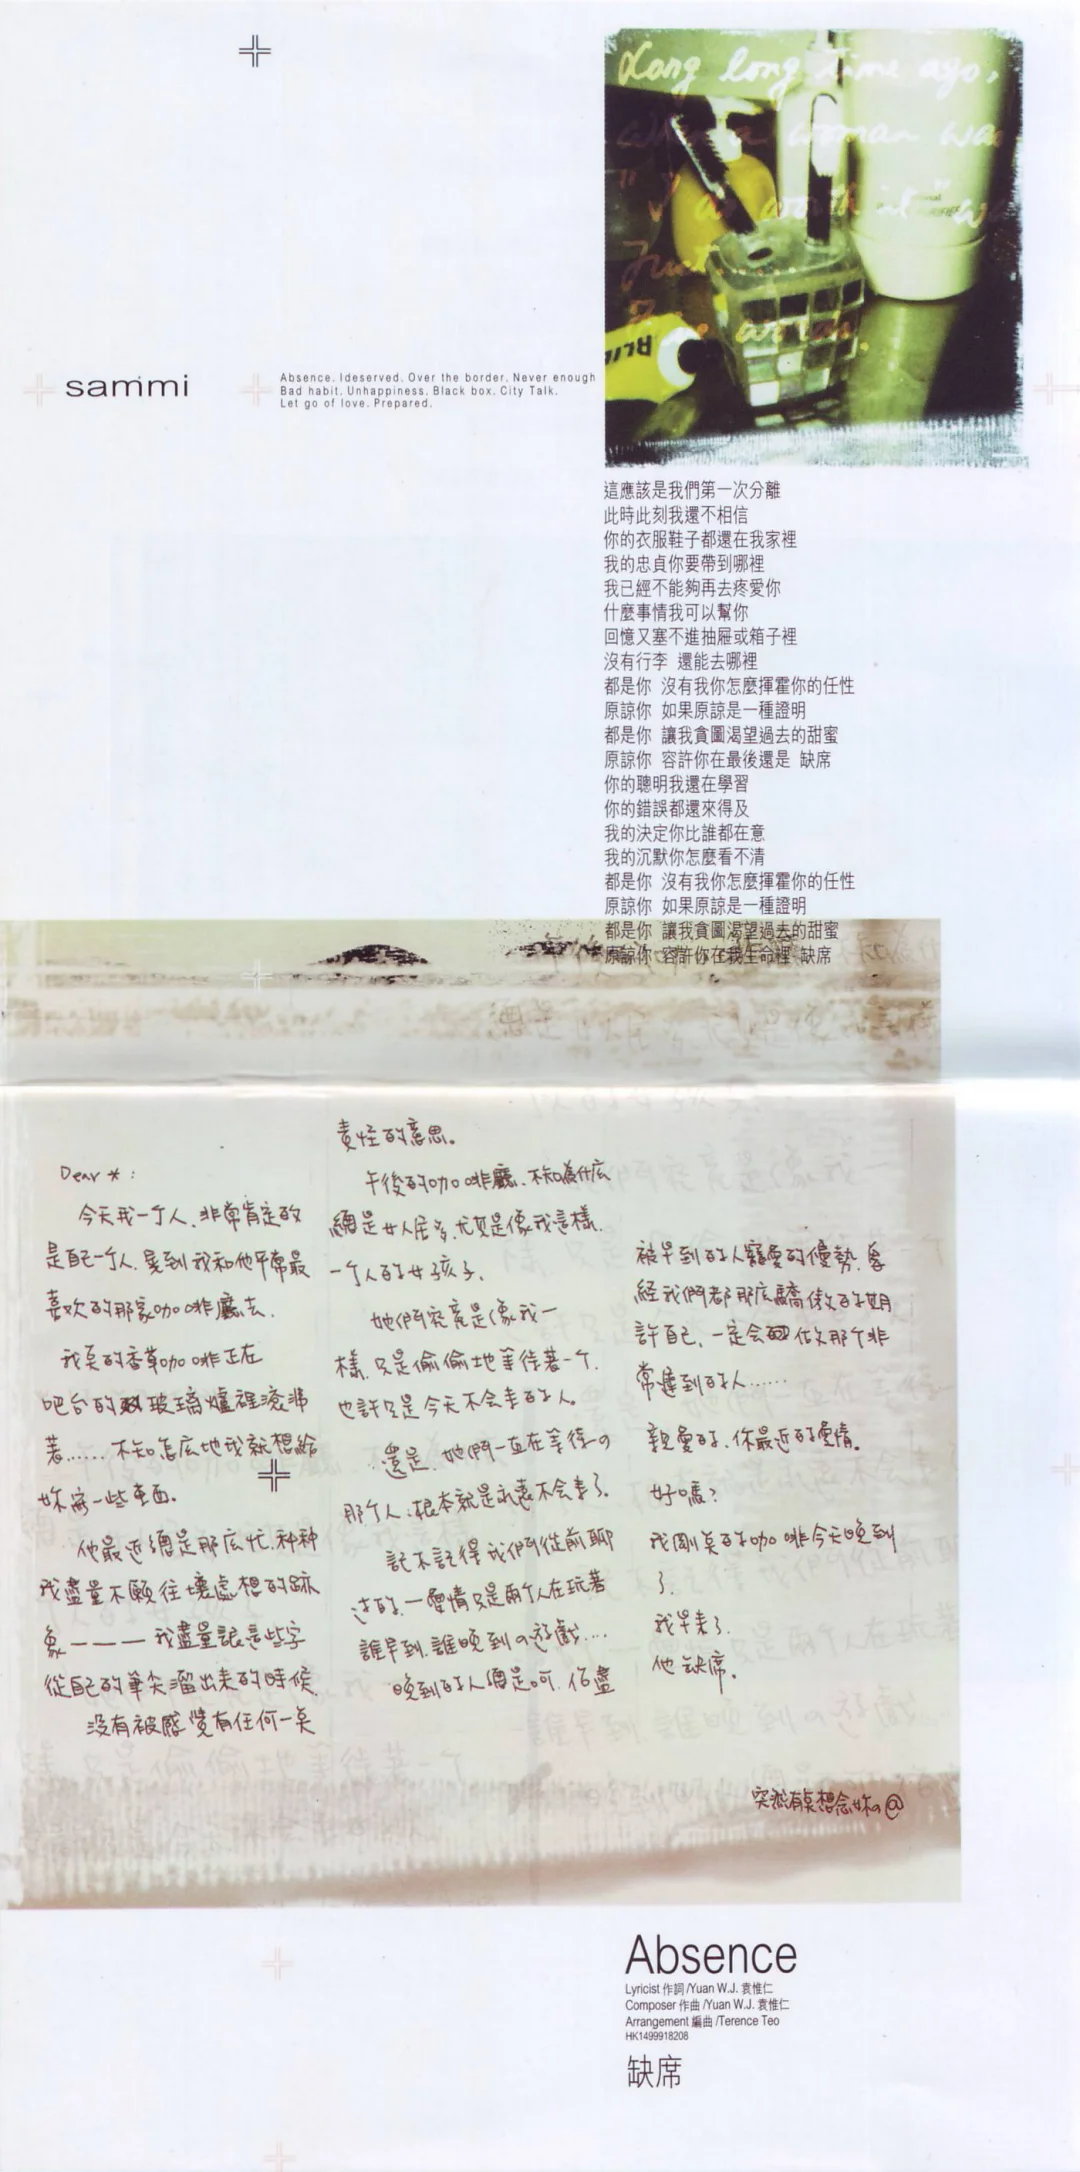 Long long time ago,
when a woman was
"I am worth it" was
Just......
Five words.
BLIC
sammi
Absence. Ideserved. Over the border. Never enough
Bad habit. Unhappiness. Black box. City Talk.
Let go of love. Prepared.
這應該是我們第一次分離
此時此刻我還不相信
你的衣服鞋子都還在我家裡
我的忠貞你要帶到哪裡
我已經不能夠再去疼愛你
什麼事情我可以幫你
回憶又塞不進抽屜或箱子裡
沒有行李 還能去哪裡
都是你 沒有我你怎麼揮霍你的任性
原諒你 如果原諒是一種證明
都是你 讓我貪圖渴望過去的甜蜜
原諒你 容許你在最後還是 缺席
你的聰明我還在學習
你的錯誤都還來得及
我的決定你比誰都在意
我的沉默你怎麼看不清
都是你 沒有我你怎麼揮霍你的任性
原諒你 如果原諒是一種證明
都是你 讓我貪圖渴望過去的甜蜜
原諒你 容許你在我生命裡 缺席
Dear *：
今天我一个人，非常肯定的
是自己一个人，晃到我和他平常最
喜欢的那家咖啡廳去，
我点的香草咖啡正在
吧台的玻璃爐裡滾沸
著……不知怎広地我就想給
妳寫一些東西。
他最近總是那広忙，种种
我盡量不願往壞處想的跡
象———我盡量讓這些字
從自己的筆尖溜出来的時候，
没有被感覺有任何一点
責怪的意思。
午後的咖啡廳，不知為什広
總是女人居多，尤其是像我這樣，
一个人的女孩子，
她們究竟是像我一
樣，只是偷偷地等待著一个，
也許只是今天不会来的人。
還是，她們一直在等待の
那个人，根本就是永遠不会来了。
記不記得我們從前聊
过的，一愛情只是兩个人在玩著
誰早到，誰晚到の遊戲....
晚到的人總是可，佔盡
被早到的人寵愛的優勢，曾
經我們都那広驕傲的期
許自己，一定会做那个非
常遲到的人……
親愛的，你最近的愛情。
好嗎？
我剛点的咖啡今天晚到
了，
我早来了，
他缺席。
突然有点想念妳の@
Absence
Lyricist 作詞 /Yuan W.J. 袁惟仁
Composer 作曲 /Yuan W.J. 袁惟仁
Arrangement 編曲 /Terence Teo
HK1499918208
缺席